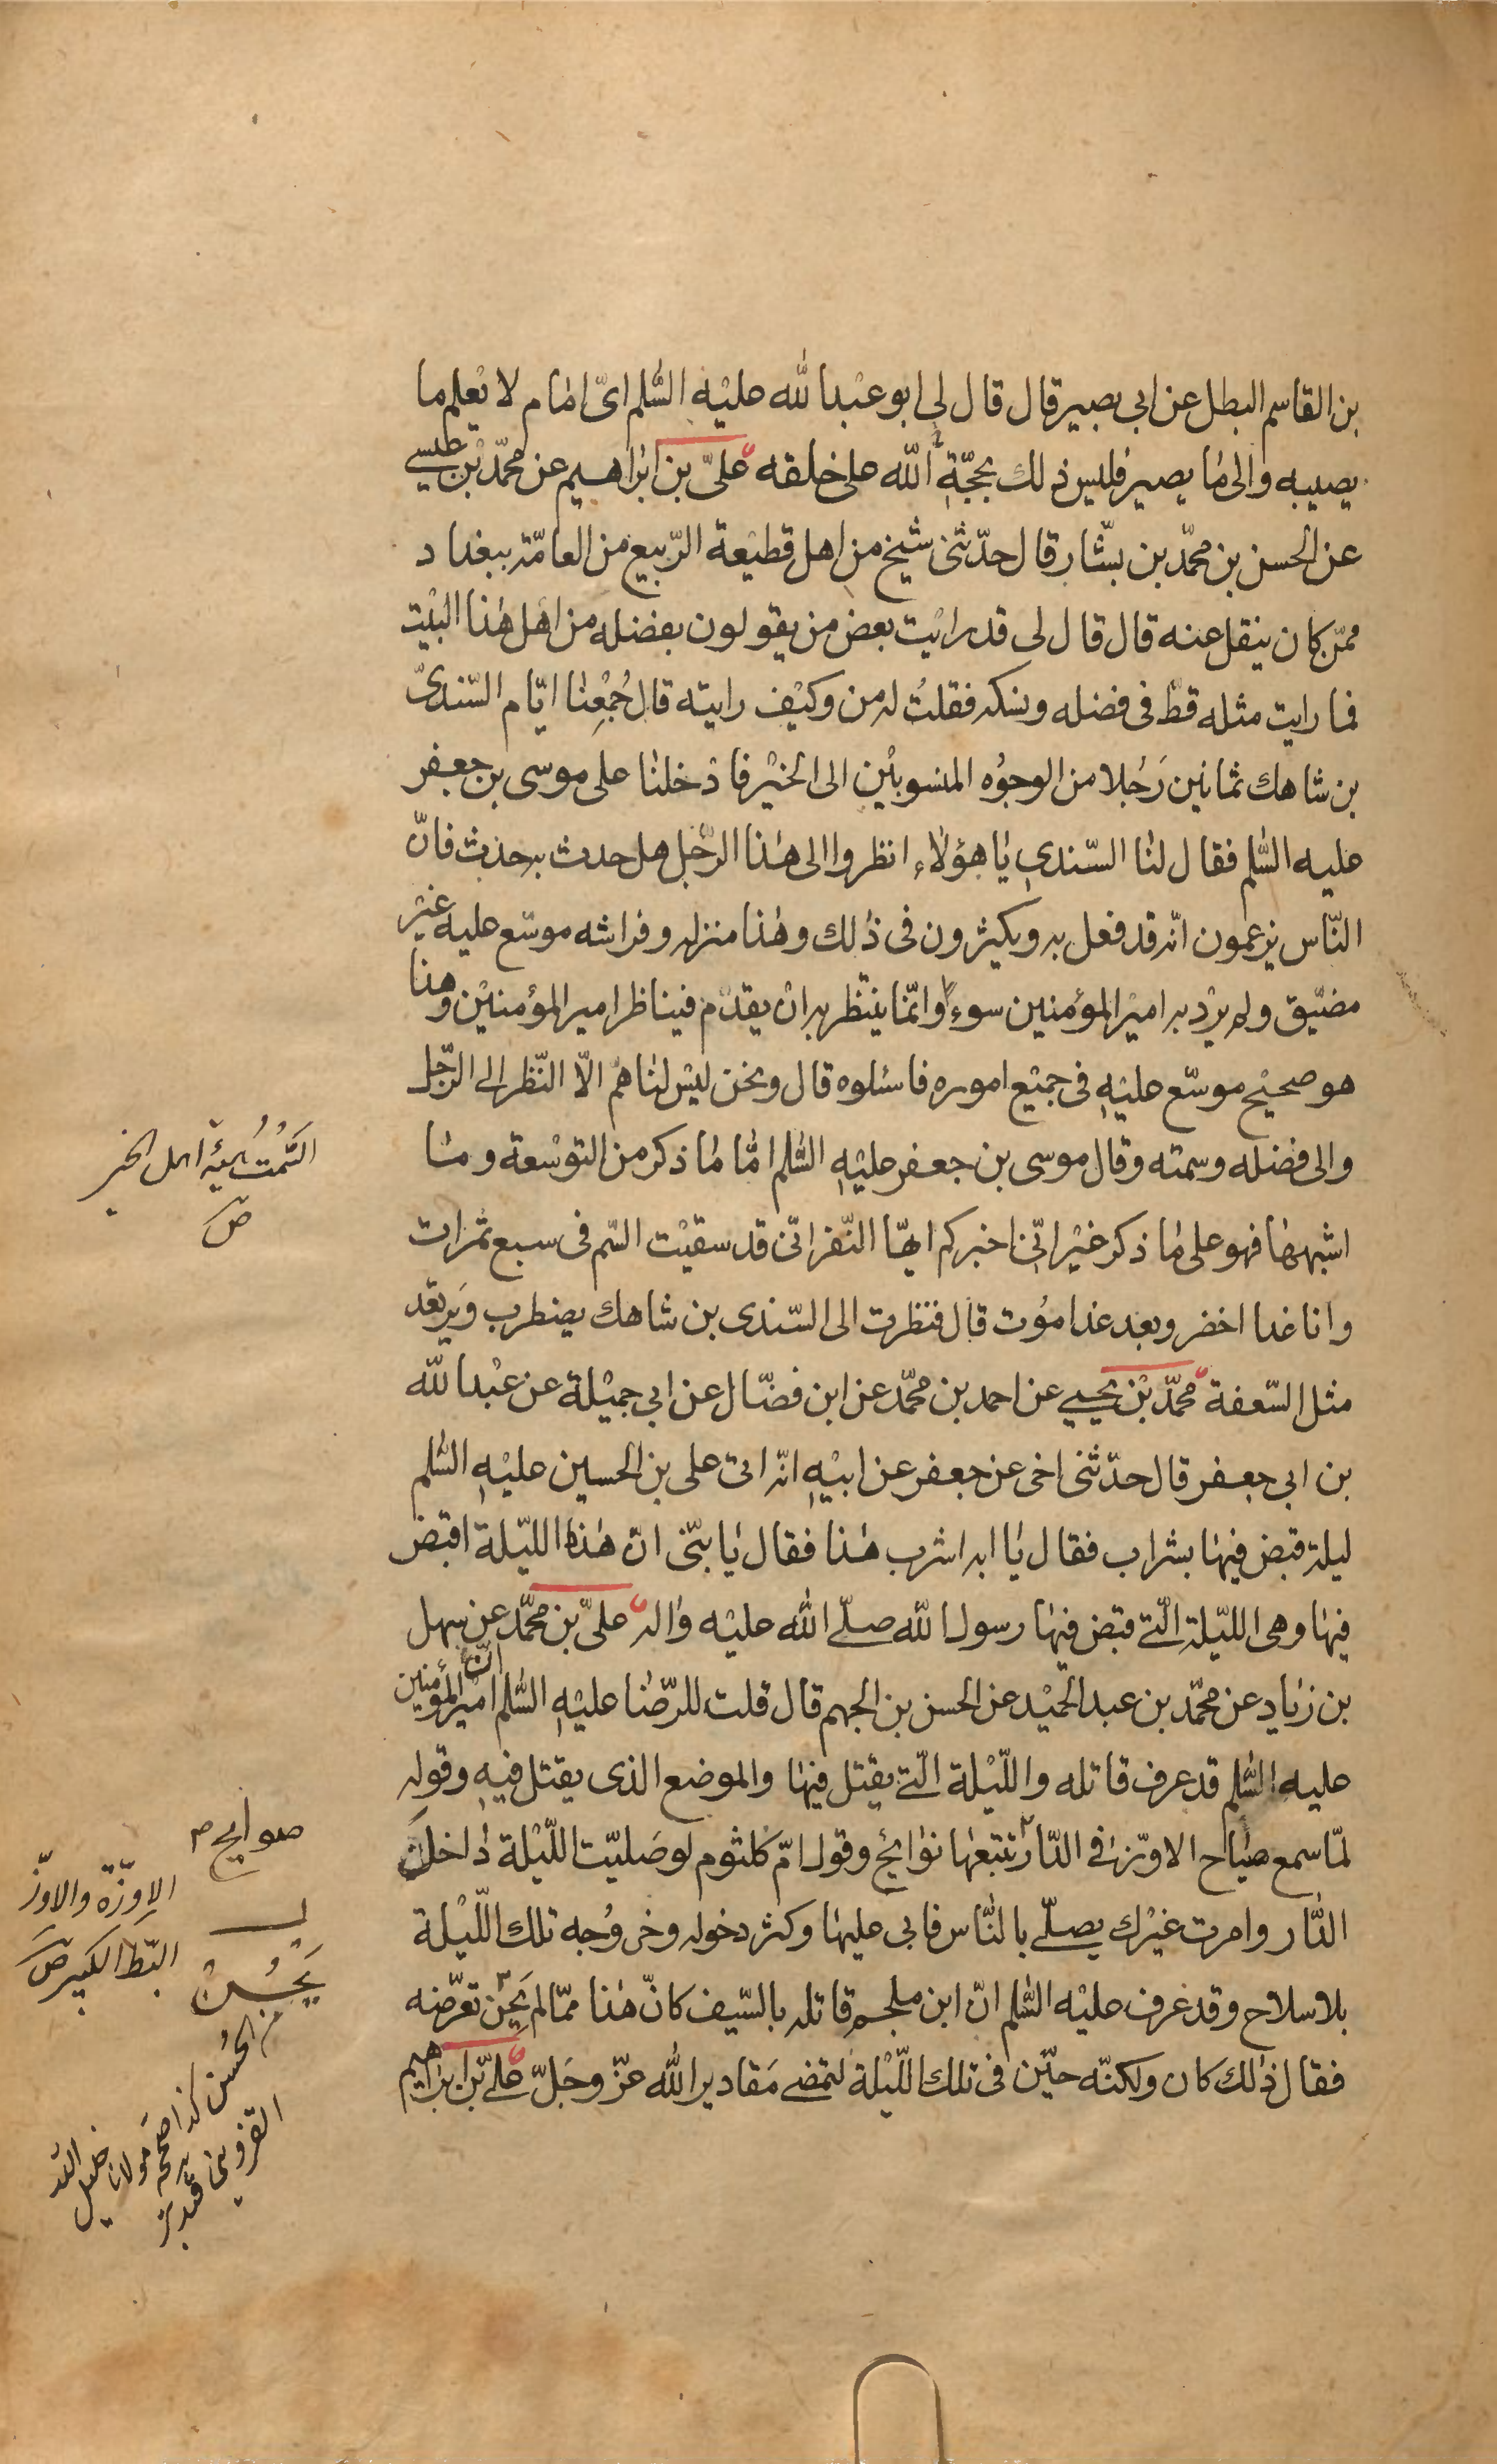 بن القاسم البطل عن ابى بصير قال قال لى ابو عبد الله عليه السّلم اىّ امام لا يعلم ما
يصيبه والى ما يصير فليس ذلك بحجّة الله على خلقه علىّ بن ابراهيم عن محمّد بن عيسى
عن الحسن بن محمّد بن بشّار قال حدّثنى شيخ من اهل قطيعة الرّبيع من العامّة ببغداد
ممّن كان ينقل عنه قال قال لى قد رايت بعض من يقولون بفضله من اهل هذا البيت
فما رايت مثله قطّ فى فضله ونسكه فقلتُ له من وكيف رايته قال جُمِعْنا ايّام السّندىّ
بن شاهك ثمانين رَجُلا من الوجوُه المنسوبين الى الخير فادخلنا على موسى بن جعفر
عليه السّلم فقال لنا السّندى يا هؤلاء انظروا الى هذا الرّجل هل حدث به حدث فانّ
النّاس يزعمون انّه قد فعل به ويكثرون فى ذلك وهذا منزله وفراشه موسّع عليه غير
مضيّق ولم يرد به امير المؤمنين سوءا وانّما ينتظر به ان يقدّم فيناظر امير المؤمنين وهذا
هو صحيح موسّع عليه فى جميع اموره فاسئلوه قال ونحن ليس لنا همّ الّا النّظر الى الرّجل
والى فضله وسمته وقال موسى بن جعفر عليه السّلم امّا ما ذكر من التوسعة وما
اشبهها فهو على ما ذكر غير انّى اخبركم ايّها النّفر انّى قد سقيت السّم فى سبع تمرات
وانا غدا اخضر وبعد غد اموُت قال فنظرت الى السّندى بن شاهك يضطرب وَيرتعد
مثل السّعفة محمّد بن يحيى عن احمد بن محمّد عن ابن فضّال عن ابى جميلة عن عبد الله
بن ابى جعفر قال حدّثنى اخى عن جعفر عن ابيه انّه اتى على بن الحسين عليه السّلم
ليلة قبض فيها بشراب فقال يا ابه اشرب هذا فقال يا بنّى انّ هذه الليّلة اقبض
فيها وهى الليّلة الّتى قبض فيها رسول الله صلّى الله عليه واله علىّ بن محمّد عن سهل
بن زياد عن محمّد بن عبد الحميد عن الحسن بن الجهم قال قلت للرّضا عليه السّلم انّ امير المؤمنين
عليه السّلم قد عرف قاتله واللّيلة الّتى يقتل فيها والموضع الذى يقتل فيه وقوله
لمّا سمع صياح الاوّز فى الدّار تتبعها نوايح وقول امّ كلثوم لو صَليّت اللّيلة داخل
الدّار وامرت غيرك يصلّى بالنّاس فابى عليها وكثر دخوله وخروُجه تلك اللّيلة
بلا سلاح وقد عرف عليه السّلم انّ ابن ملجم قاتله بالسّيف كانّ هذا ممّا لم يَحن تعرّضه
فقال ذلك كان ولكنّه حيّن فى تلك اللّيلة لتمضى مَقادير الله عزّ وجَلّ علىّ بن ابراهيم
السَّمْتُ هيئة اهل الخير
ص
صوايح م
الاوزّة والاوزّ
البّط الكبير ص
يَحْسُنْ
من الحُسن كذا صححه مولانا خليل الله
القزوينى